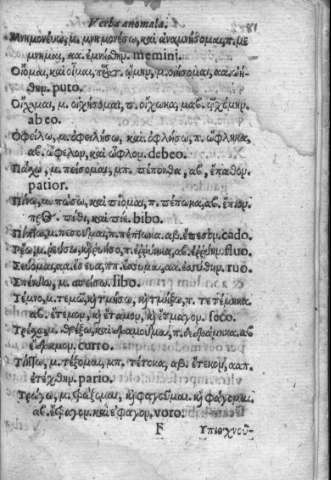 Verba anomala. 81
Μνημονεύω, μ. μνημονεύσω, καὶ ἀναμνήσομαι, π. μέ
μνημαι, αα. ἐμνήσθην. memini.
Οἴομαι, καὶ οἶμαι, ᾤμην, μ. οἰήσομαι, αα. ᾠή-
θην. puto.
Οἴχομαι, μ. οἰχήσομαι, π. ᾤχωκα, ᾠχόμην.
abeo.
Ὀφείλω, μ. ὀφειλήσω, καὶ ὀφλήσω, π. ὤφληκα,
αβ. ὤφελον, καὶ ὦφλον. debeo.
Πάσχω, μ. πείσομαι, μπ. πέπονθα, αβ. ἔπαθον.
patior.
Πίνω, μ. πώσω, καὶ πίομαι, π. πέπωκα, αβ. ἔπιον.
πίθι, καὶ πίε. bibo.
Πίπτω, μ. πεσοῦμαι, π. πέπτωκα. αβ. ἔπεσον. cado.
Ῥέω, μ. ῥεύσω, καὶ π. ἐρρύηκα, αβ. ἐρρύην. fluo.
ruo.
Σπένδω, μ. σπείσω. libo.
Τέμνω, μ. τεμῶ, καὶ τμήσω, καὶ π. τέτμηκα.
αβ. ἔτεμον, καὶ ἔταμον, καὶ seco.
Τρέχω, μ. θρέξω, καὶ δραμοῦμαι, π. δεδράμηκα. αβ
ἔδραμον. curro.
Τίκτω, μ. τέξομαι, μπ. τέτοκα, αβ. ἔτεκον, ααπ.
ἐτέχθην. pario.
Τρώγω, μ. φάξομαι, καὶ φαγοῦμαι. καὶ φάγομαι.
αβ. ἔτραγον. καὶ ἔφαγον. voro.
F Ὑπισχνοῦ-